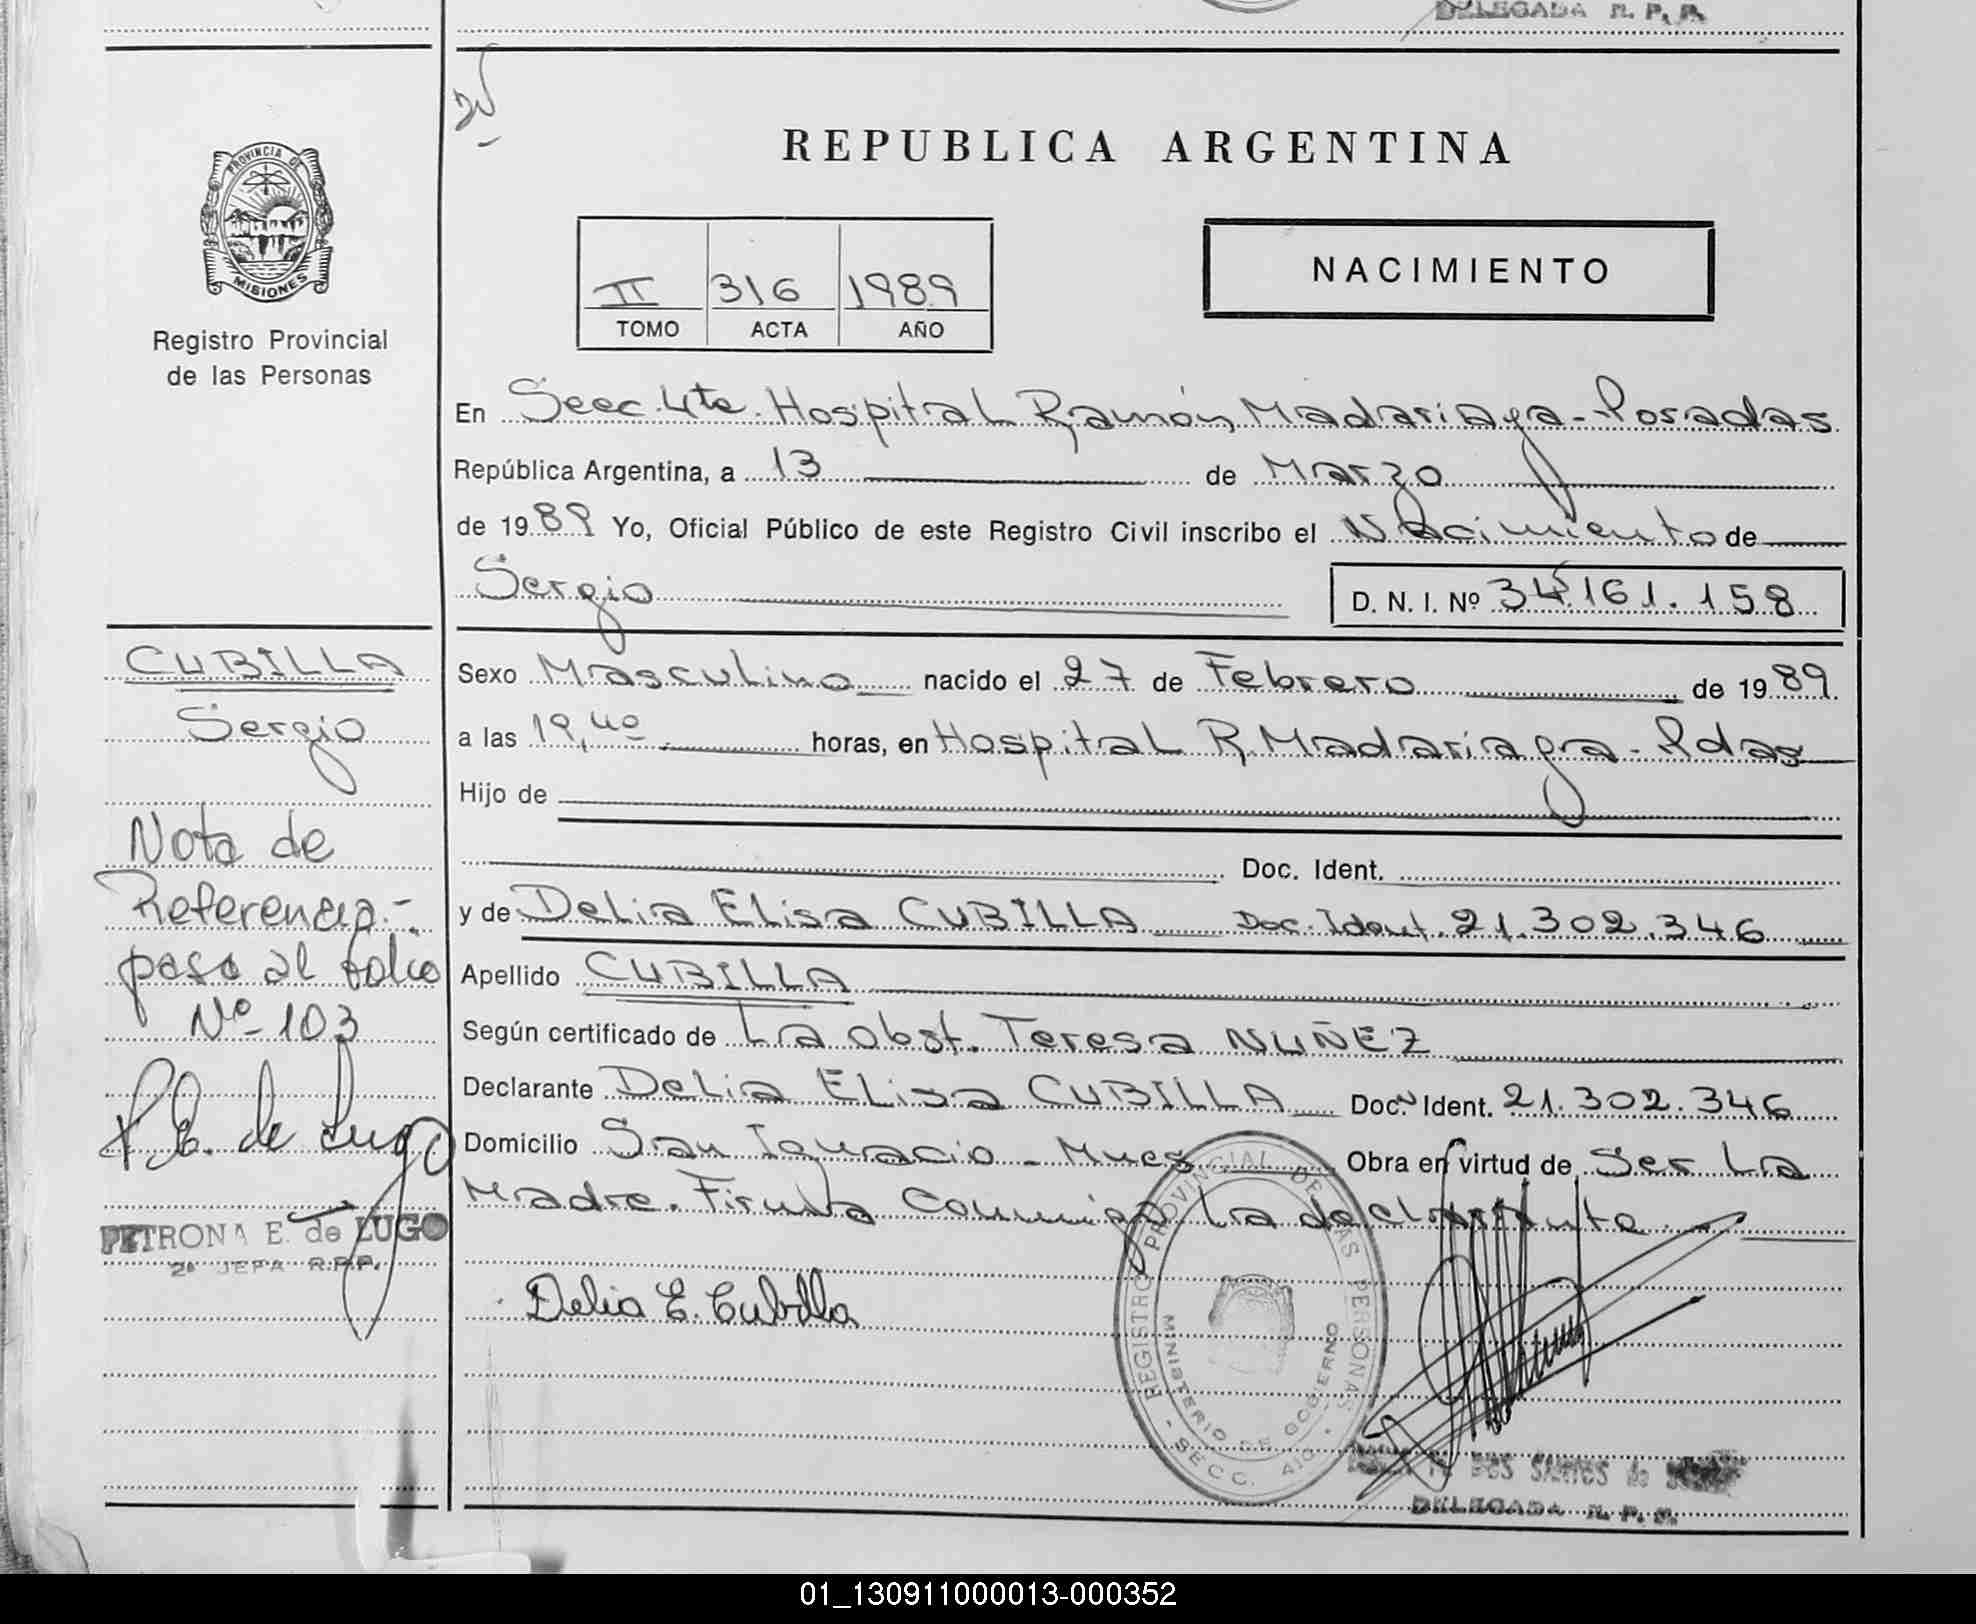 DELEGADA R. P. P.
REPUBLICA ARGENTINA
PROVINCIA DE
MISIONES
Registro Provincial
de las Personas
II 316 1989
TOMO ACTA AÑO
NACIMIENTO
En Secc. 4ta. Hospital Ramón Madariaga - Posadas
República Argentina, a 13 de Marzo
de 1989 Yo, Oficial Público de este Registro Civil inscribo el Nacimiento de
Sergio D. N. I. Nº 34.161.158
CUBILLA
Sergio
Nota de
Referencia.-
pasa al folio
Nº 103
P.E. de Lugo
PETRONA E. de LUGO
2ª JEFA R.P.P.
Sexo Masculino nacido el 27 de Febrero de 1989
a las 19,40 horas, en Hospital R. Madariaga - Pdas
Hijo de
Doc. Ident.
y de Delia Elisa CUBILLA Doc. Ident. 21.302.346
Apellido CUBILLA
Según certificado de La obst. Teresa NUÑEZ
Declarante Delia Elisa CUBILLA Doc. Ident. 21.302.346
Domicilio San Ignacio - Mnes Obra en virtud de Ser La
Madre. Firma Conmigo La declarante.
Delia E. Cubilla
REGISTRO PROVINCIAL DE LAS PERSONAS
MINISTERIO DE GOBIERNO
SECC. 4ta
DOS SANTOS de
DELEGADA R. P. P.
01_130911000013-000352